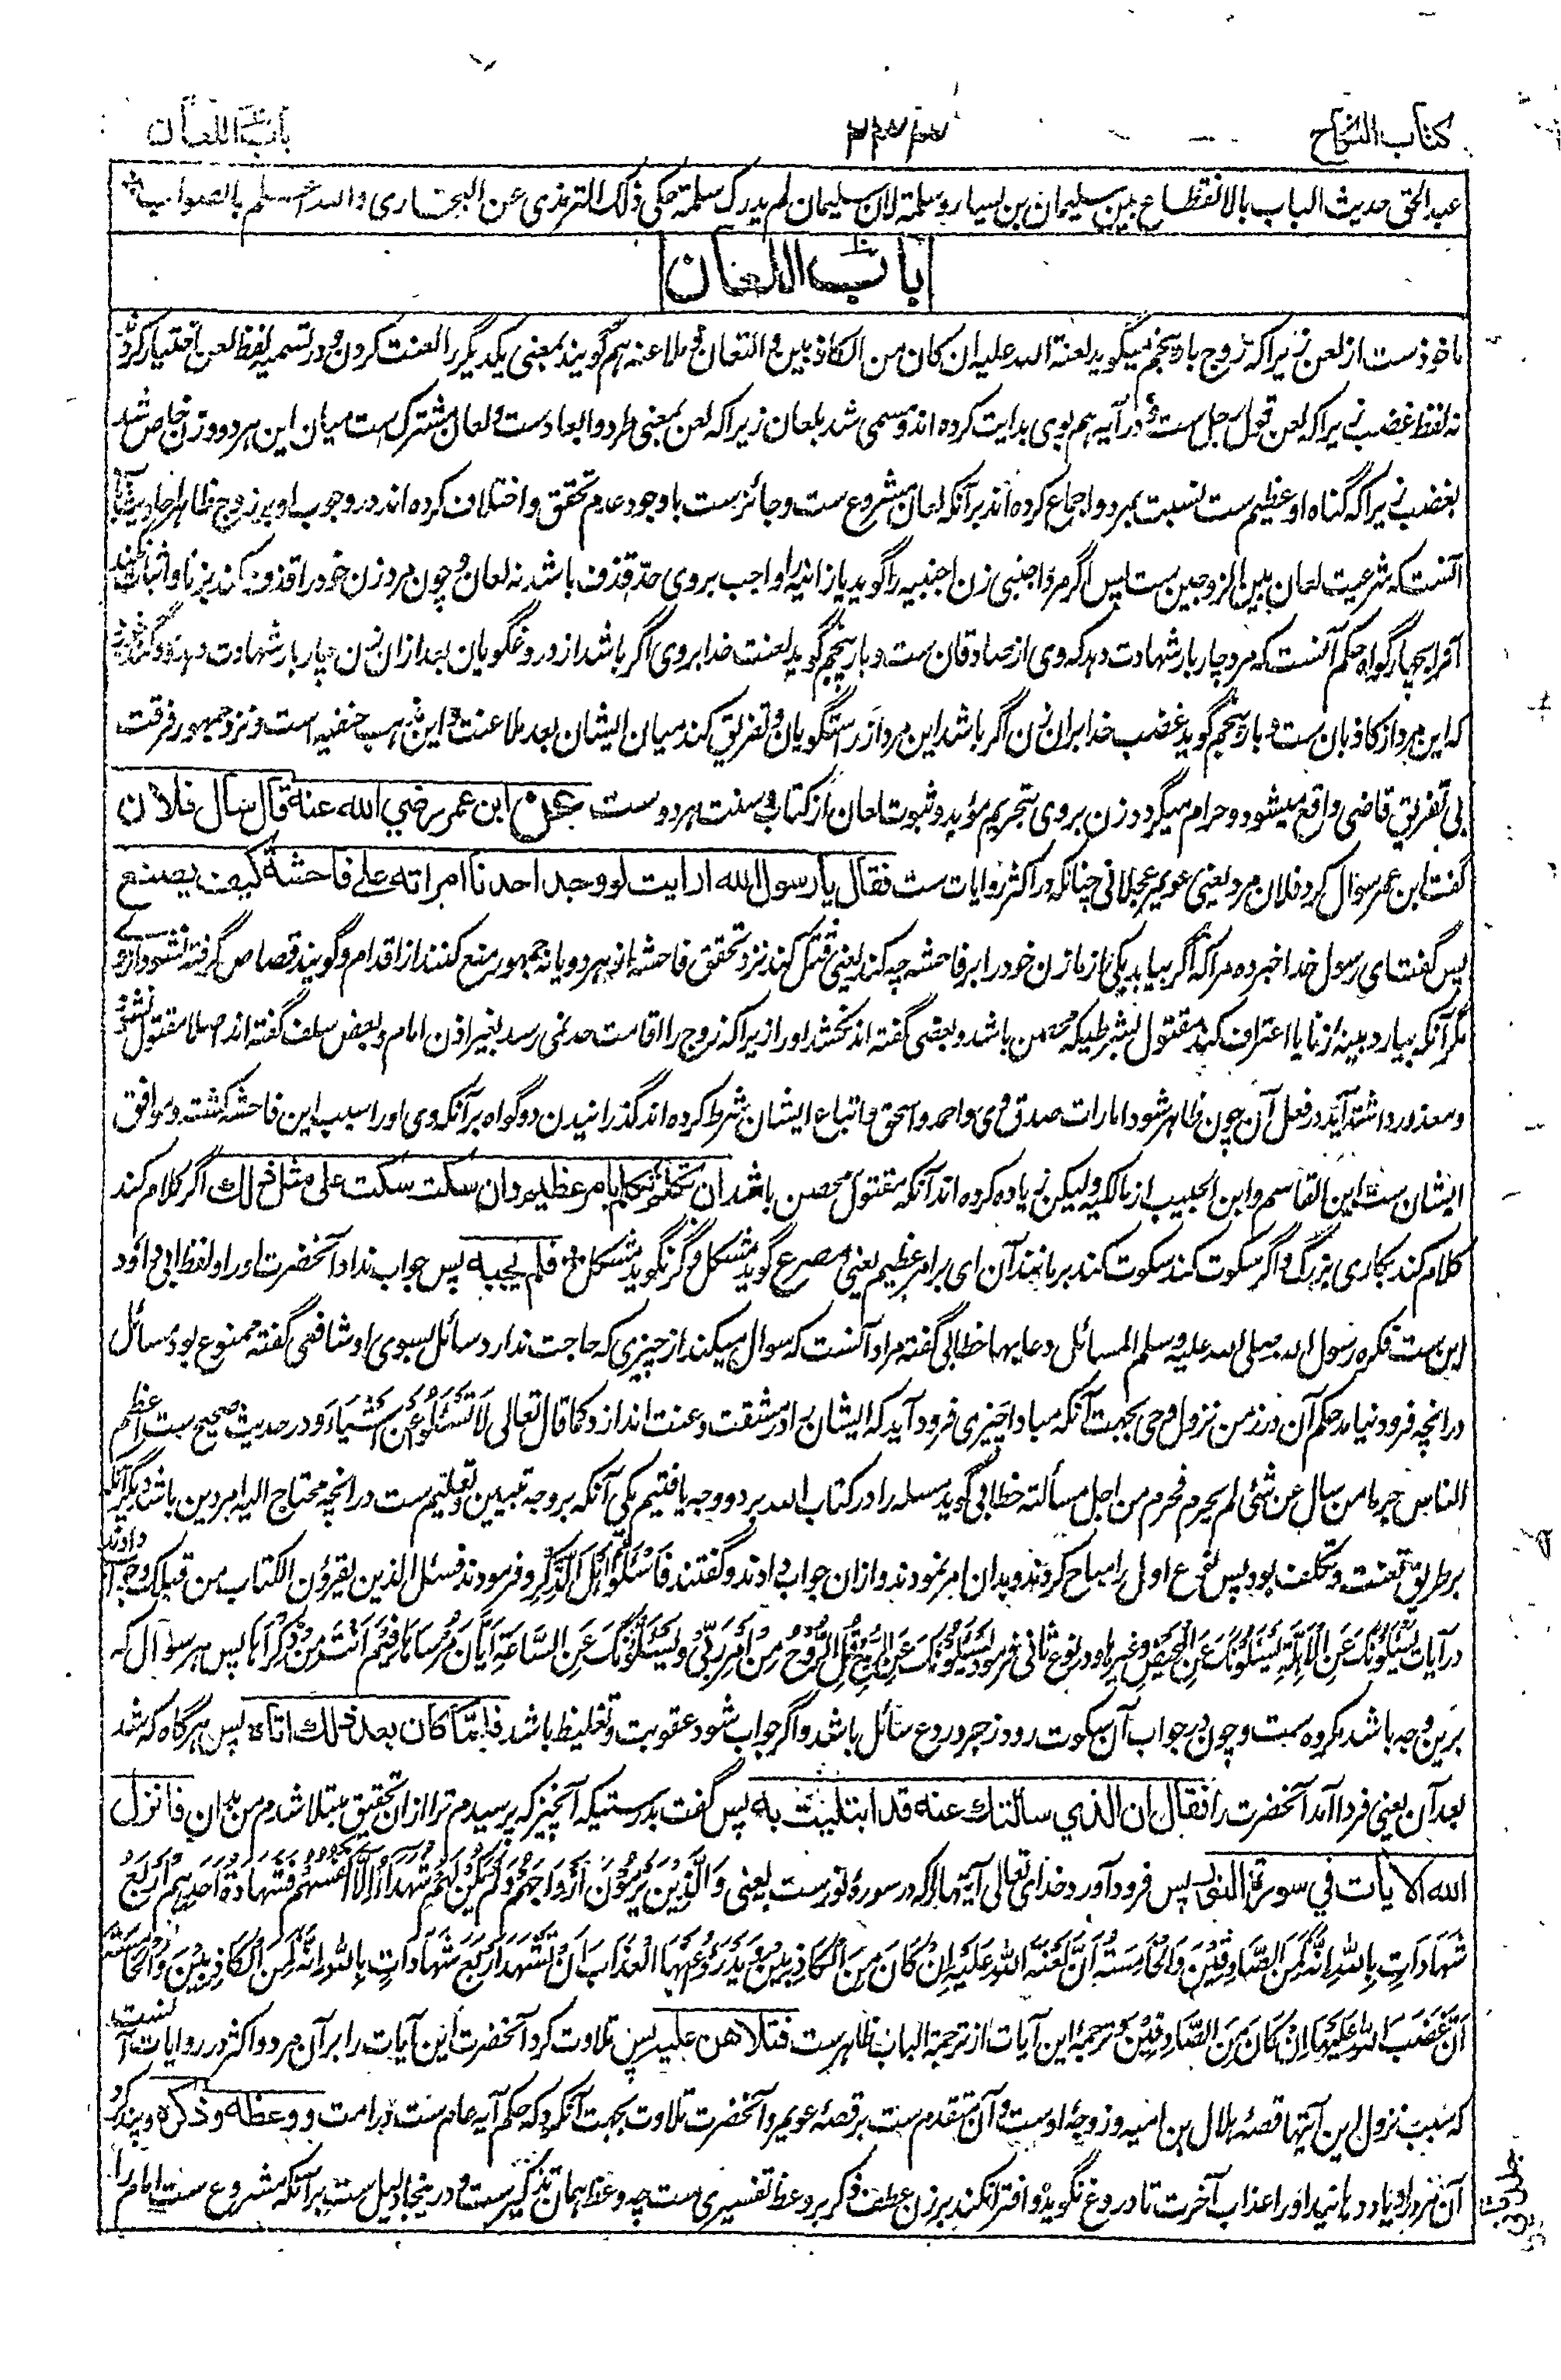 کتاب النکاح
۲۳۳
باب اللعان
عبد الحق حدیث الباب بالانقطاع بین سلیمان بن یسار و سلمة لان سلیمان لم یدرک سلمة حکی ذلک الترمذی عن البخاری والله اعلم بالصواب
باب اللعان
ماخوذست از لعن زیرا که زوج بار پنجم میگوید لعنة الله علیه ان کان من الکاذبین و التعان و ملاعنه هم گویند بمعنی یکدیگر را لعنت کردن و در تسمیه لفظ لعن اختیار کردند
نه لفظ غضب زیرا که لعن قول رجل ست و در آیه هم بوی بدایت کرده اند و مسمی شد بلعان زیرا که لعن بمعنی طرد و ابعادست و لعان مشترک ست میان این هر دو و زن خاص شد
بغضب زیرا که گناه او عظیم ست نسبت بمرد و اجماع کرده اند برآنکه لعان مشروع ست و جائزست با وجود عدم تحقق و اختلاف کرده اند در وجوب او بر زوج ظاهر احادیث باب
آنست که شرعیت لعان بین الزوجین ست پس اگر مرد اجنبی زن اجنبیه را گوید یا زانیه او را واجب بروی حد قذف باشد نه لعان و چون مرد زن خود را قذف کند بزنا و اثبات نکند
آنرا بچهار گواه حکم آنست که مرد چار بار شهادت دهد که وی از صادقان ست و بار پنجم گوید لعنت خدا بروی اگر باشد از دروغگویان بعد ازان زن چهار بار شهادت دهد
که این مرد از کاذبان ست و بار پنجم گوید غضب خدا بر آن زن اگر باشد این مرد از راستگویان و تفریق کند میان ایشان بعد ملاعنت و این مذهب حنفیه است و نزد جمهور فرقت
بی تفریق قاضی واقع میشود و حرام میگردد زن بروی بتحریم مؤبد و ثبوت لعان از کتاب و سنت هر دوست عن ابن عمر رضي الله عنه قال سال فلان
گفت ابن عمر سؤال کرد فلان مرد یعنی عویمر عجلانی چنانکه در اکثر روایات ست فقال یا رسول الله ارایت لو وجد احدنا امراته علی فاحشة کیف یصنع
پس گفت ای رسول خدا خبر ده مرا که اگر بیابد یکی از ما زن خود را بر فاحشه چه کند یعنی قتل کند نزد تحقق فاحشه از هر دو یا نه جمهور منع کنند از اقدام و گویند قصاص گرفته شود از وی
مگر آنکه بیارد بینه از زنا یا اعتراف کند مقتول بشرطیکه محصن باشد و بعضی گفته اند نکشد او را زیرا که زوج را اقامت حد نمی رسد بغیر اذن امام و بعض سلف گفته اند اصلا مقتول نشود
و معذور داشته آید در فعل آن چون ظاهر شود امارات صدق وی و احمد و اسحق و اتباع ایشان شرط کرده اند گذرانیدن دو گواه برآنکه وی او را بسبب این فاحشه کشته و موافق
ایشان ست ابن القاسم و ابن الحبیب از مالکیه و لیکن زیاده کرده اند آنکه مقتول محصن باشد ان تکلم تکلم بامر عظیم وان سکت سکت علی مثل ذلك اگر کلام کند
کلام کند بکاری بزرگ و اگر سکوت کند سکوت کند بر مانند آن ای بر امر عظیم یعنی مصرع گوید مشکل و گر نگوید مشکل فلم یجبه پس جواب نداد آنحضرت او را و لفظ ابی داؤد
این ست فکره رسول الله صلی الله علیه وسلم المسائل و عابها خطابی گفته مراد آنست که سوال میکند از چیزی که حاجت ندارد سائل بسوی او شافعی گفته ممنوع بود سائل
درانچه فرود نیامد حکم آن در زمن نزول وحی بجهت آنکه مبادا چیزی فرود آید که ایشان را در مشقت و عنت اندازد کما قال تعالی لا تسئلوا عن اشیاء و در حدیث صحیح ست اعظم
الناس جرما من سال عن شئی لم یحرم فحرم من اجل مسألته خطابی گوید مسئله را در کتاب الله بر دو وجه یافتیم یکی آنکه بر وجه تبیین و تعلیم ست درانچه محتاج الیه امر دین باشد دیگر آنکه
بر طریق تعنت و تکلف بود پس نوع اول را مباح کردند و بدان امر نمودند و ازان جواب دادند و گفتند فاسئلوا اهل الذکر و فرمودند فسئل الذین یقرؤن الکتاب من قبلک و جواب دادند
در آیات یسئلونک عن الاهلة یسئلونک عن المحیض و غیرها و در نوع ثانی فرمود یسئلونک عن الروح قل الروح من امر ربی و یسئلونک عن الساعة ایان مرساها فیم انت من ذکراها پس هر سوال که
برین وجه باشد مکروه ست و چون در جواب آن سکوت رود زجر و ردع سائل باشد و اگر جواب شود عقوبت و تغلیظ باشد فلما کان بعد ذلك اتاه پس هرگاه که شد
بعد آن یعنی فردا آمد آنحضرت را فقال ان الذي سالتك عنه قد ابتلیت به پس گفت بدرستیکه آنچیز که پرسیدم ترا ازان تحقیق مبتلا شدم من بدان فانزل
الله الایات في سورة النور پس فرود آورد خدای تعالی آیتها را که در سوره نورست یعنی وَالَّذِیْنَ یَرْمُوْنَ اَزْوَاجَهُمْ وَلَمْ یَکُنْ لَهُمْ شُهَدَاءُ اِلَّا اَنْفُسُهُمْ فَشَهَادَةُ اَحَدِهِمْ اَرْبَعُ
شَهَادَاتٍ بِاللهِ اِنَّهُ لَمِنَ الصَّادِقِیْنَ وَالْخَامِسَةُ اَنَّ لَعْنَةَ اللهِ عَلَیْهِ اِنْ کَانَ مِنَ الْکَاذِبِیْنَ وَیَدْرَؤُ عَنْهَا الْعَذَابَ اَنْ تَشْهَدَ اَرْبَعَ شَهَادَاتٍ بِاللهِ اِنَّهُ لَمِنَ الْکَاذِبِیْنَ وَالْخَامِسَةَ
اَنَّ غَضَبَ اللهِ عَلَیْهَا اِنْ کَانَ مِنَ الصَّادِقِیْنَ و ترجمهٔ این آیات از ترجمة الباب ظاهرست فتلاهن علیه پس تلاوت کرد آنحضرت این آیات را بر آن مرد و اکثر در روایات آنست
که سبب نزول این آیتها قصهٔ هلال بن امیه و زوجهٔ اوست و آن متقدم ست بر قصهٔ عویمر و آنحضرت تلاوت بجهت آنکرد که حکم آیه عام ست در امت و وعظه و ذکره و پند کرد
آن مرد را و یاد دهانید او را عذاب آخرت تا دروغ نگوید و افترا نکند بر زن عطف ذکر بر وعظ تفسیری ست چه وعظ همان تذکیرست و درینجا دلیل ست برآنکه مشروع ست امام را